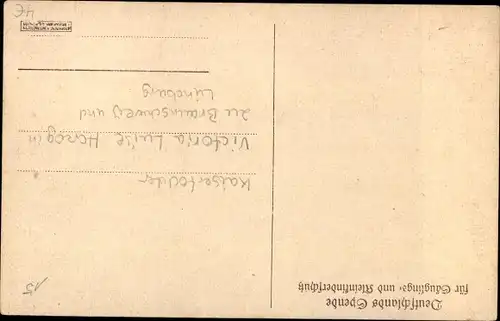 Deutschlands Spende
für Säuglings- und Kleinkinderschutz
Kaisertochter
Victoria Luise Herzogin
zu Braunschweig und
Lüneburg
15
4€